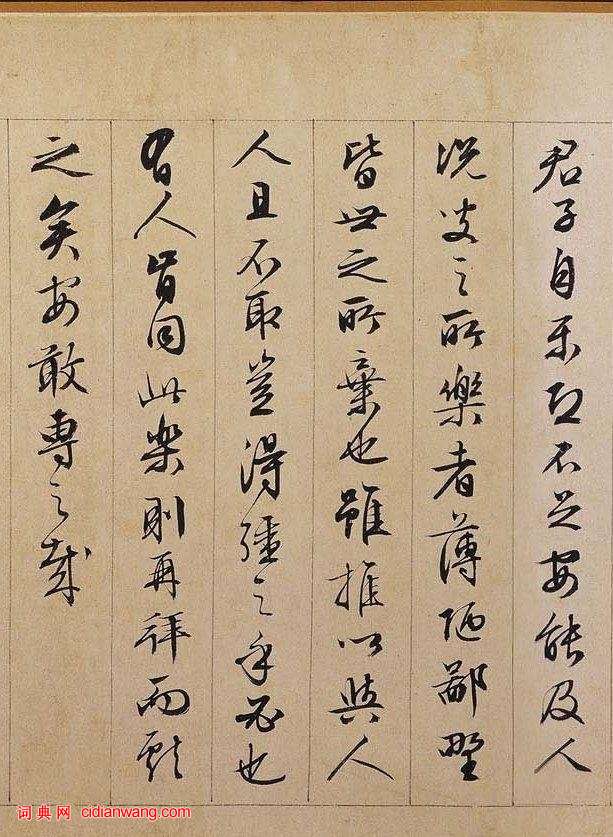 君子自樂恐不足安能及人
況叟之所樂者薄陋鄙野
皆世之所棄也雖推以與人
人且不取豈得彊之乎必也
有人肯同此樂則再拜而獻
之矣安敢專之哉
词典网 cidianwang.com